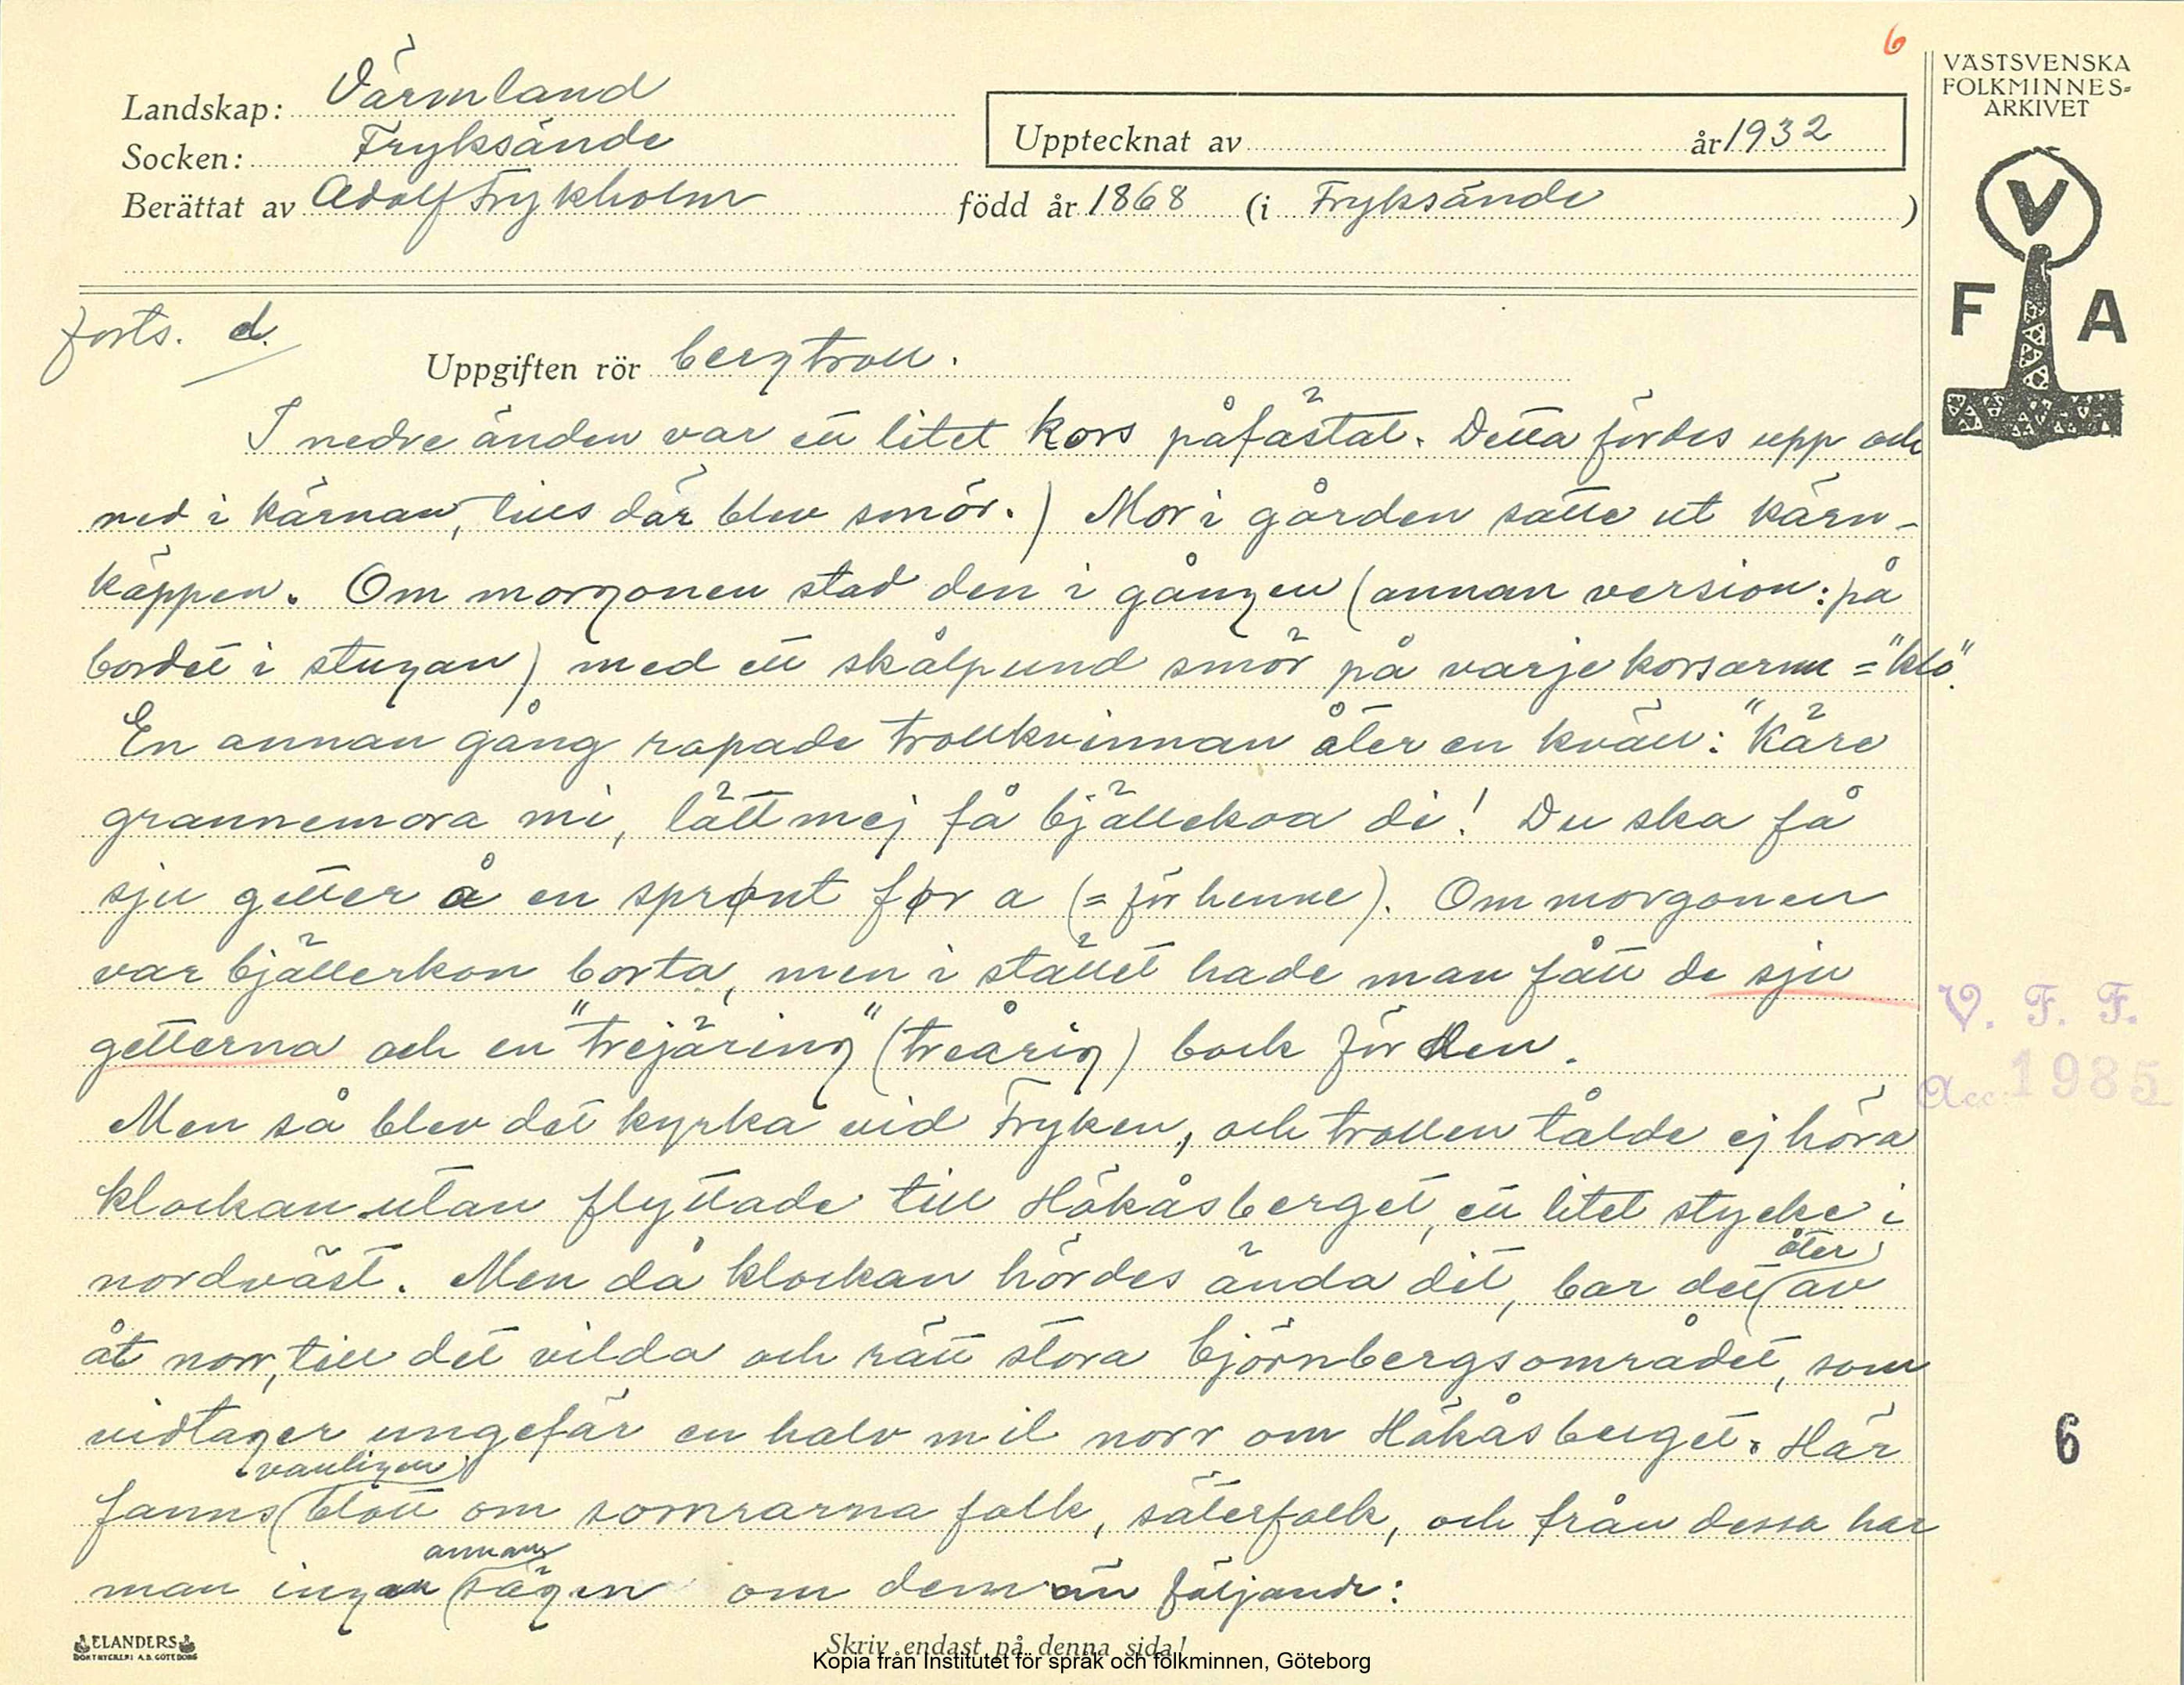 6
VÄSTSVENSKA
FOLKMINNES-
ARKIVET
Landskap: Värmland
Socken: Fryksände
Upptecknat av år 1932
Berättat av Adolf Frykholm född år 1868 (i Fryksände )
V
F A
forts. d.
Uppgiften rör bergtroll.
I nedre änden var ett litet kors påfästat. Detta fördes upp och
ned i kärnan, tills där blev smör.) Mor i gården satte ut kärn-
käppen. Om morgonen stod den i gången (annan version: på
bordet i stugan) med ett skålpund smör på varje korsarm = "klo".
En annan gång ropade trollkvinnan åter en kväll: "Käre
grannemora mi, lätt mej få bjällekoa di! Du ska få
sju getter å en sprønt før a (= för henne). Om morgonen
var bjällerkon borta, men i stället hade man fått de sju
getterna och en "trejäring" (treårig) bock för den.
Men så blev det kyrka vid Fryken, och trollen tålde ej höra
klockan utan flyttade till Hökåsberget, ett litet stycke i
nordväst. Men då klockan hördes ända dit, bar det åter av
åt norr, till det vilda och rätt stora björnbergsområdet, som
vidtager ungefär en halv mil norr om Hökåsberget. Här
fanns vanligen blott om somrarna folk, säterfolk, och från dessa har
man ingen annan sägen om dem än följande:
V. F. F.
Acc: 1985
6
ELANDERS
BOKTRYCKERI A.B. GÖTEBORG
Skriv endast på denna sida!
Kopia från Institutet för språk och folkminnen, Göteborg